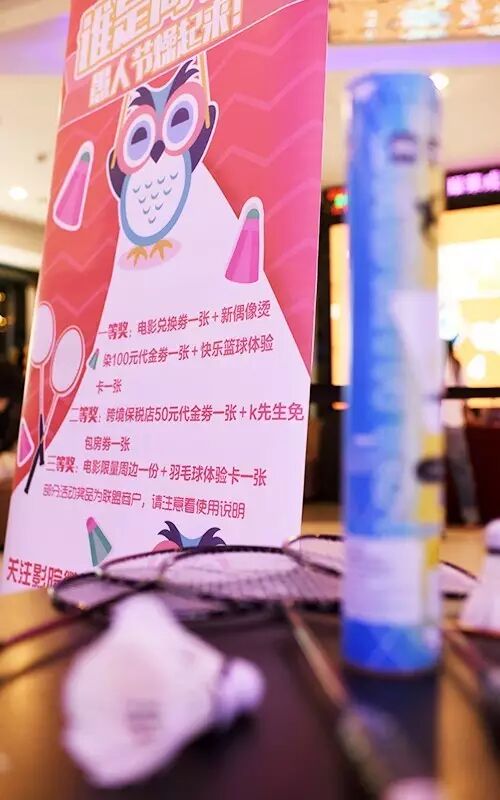 愚人节燥起来!
一等奖：电影兑换券一张＋新偶像烫
染100元代金券一张＋快乐篮球体验
卡一张
二等奖：跨境保税店50元代金券一张＋k先生免
包房券一张
三等奖：电影限量周边一份＋羽毛球体验卡一张
部分活动奖品为联盟商户，请注意看使用说明
关注影院